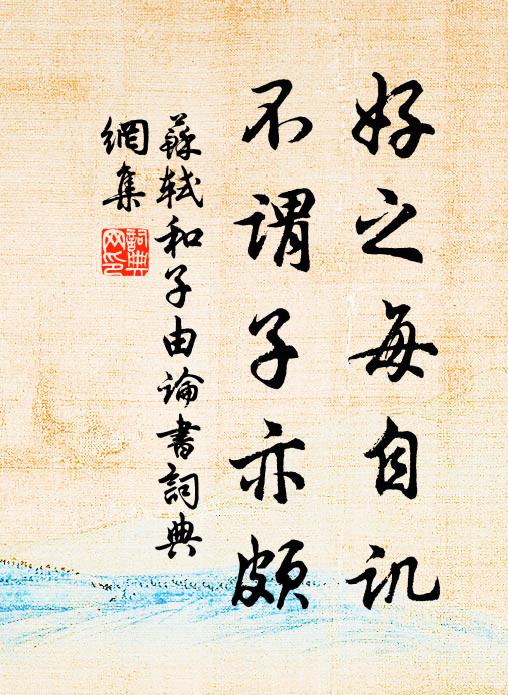 好之每自讥
不谓子亦颇
蘇軾和子由論書詞典
網集
詞典
网印